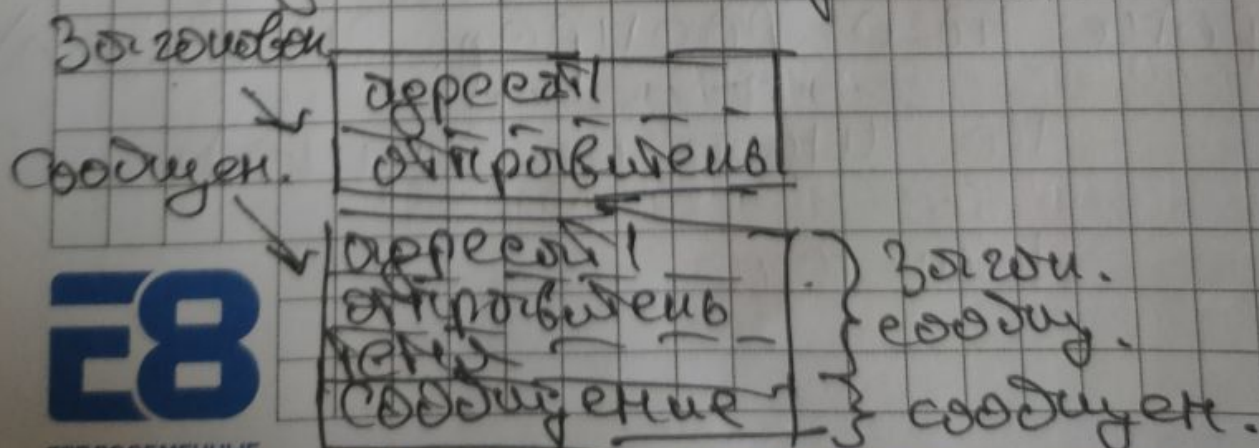 Заголовок
адресат 1
отправитель
Сообщен.
адресат 1
отправитель
тема
сообщение
Загол.
сообщ.
сообщен.
E8